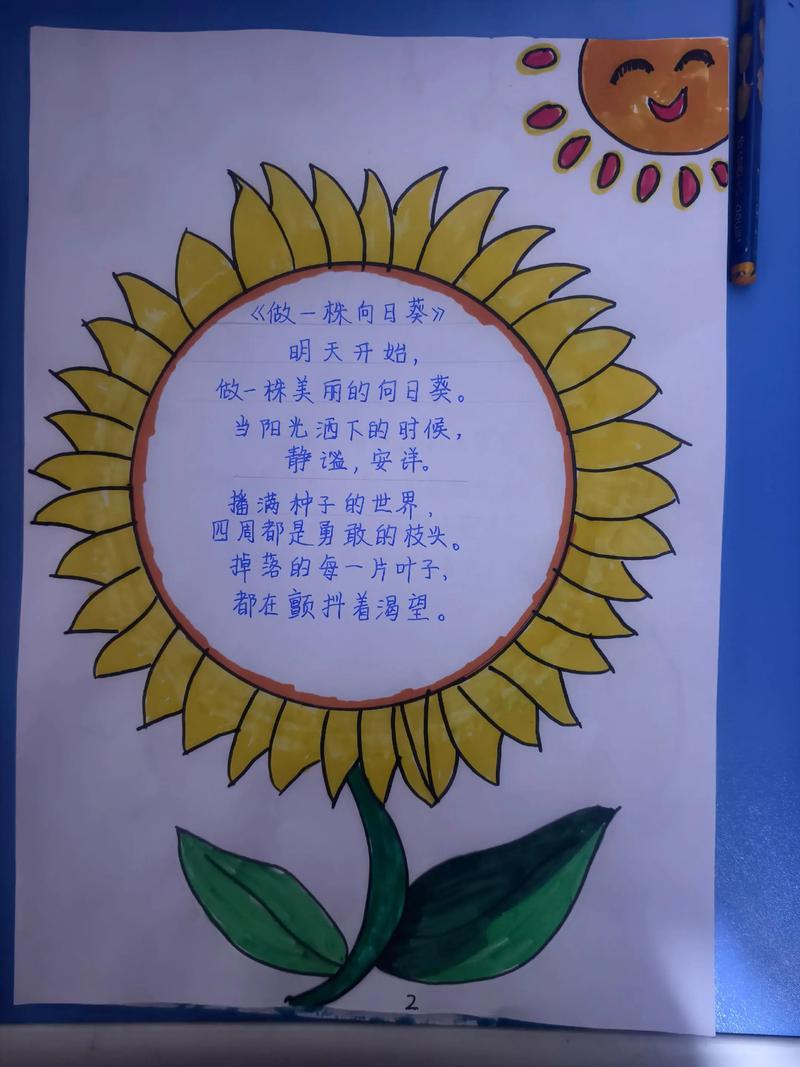 《做一株向日葵》
明天开始，
做一株美丽的向日葵。
当阳光洒下的时候，
静谧，安详。
播满种子的世界，
四周都是勇敢的枝头。
掉落的每一片叶子，
都在颤抖着渴望。
2